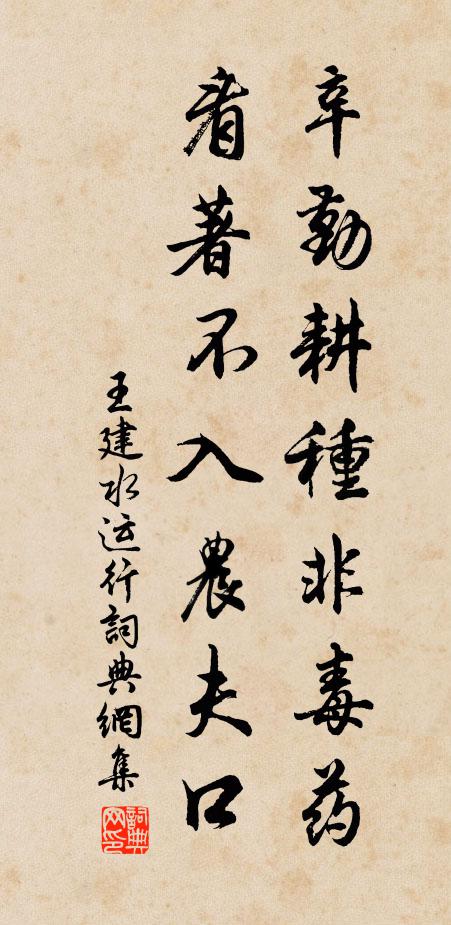 辛勤耕種非毒药
看著不入農夫口
王建水运行詞典網集
詞典网印